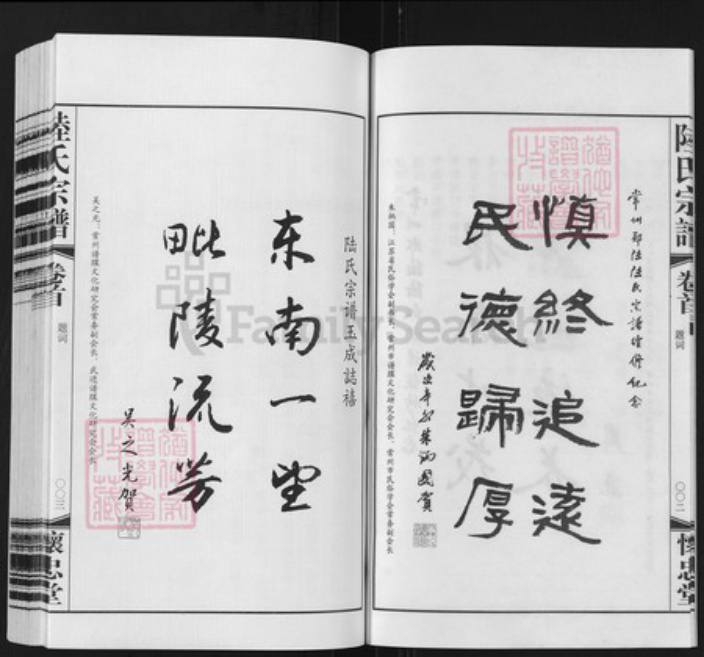 常州
陆氏宗谱
纪念
慎终追遠
民德歸厚
賀
朱炳国：江苏省民俗学会副会长、常州市谱牒文化研究会会长、常州市民俗学会常务副会长
陸氏宗譜
卷首
题词
〇〇二
懷忠堂
陆氏宗谱玉成誌禧
东南一望
毗陵流芳
吴之光贺
吴之光：常州谱牒文化研究会常务副会长、武进谱牒文化研究会会长
陸氏宗譜
卷首
题词
〇〇三
懷忠堂
FamilySearch